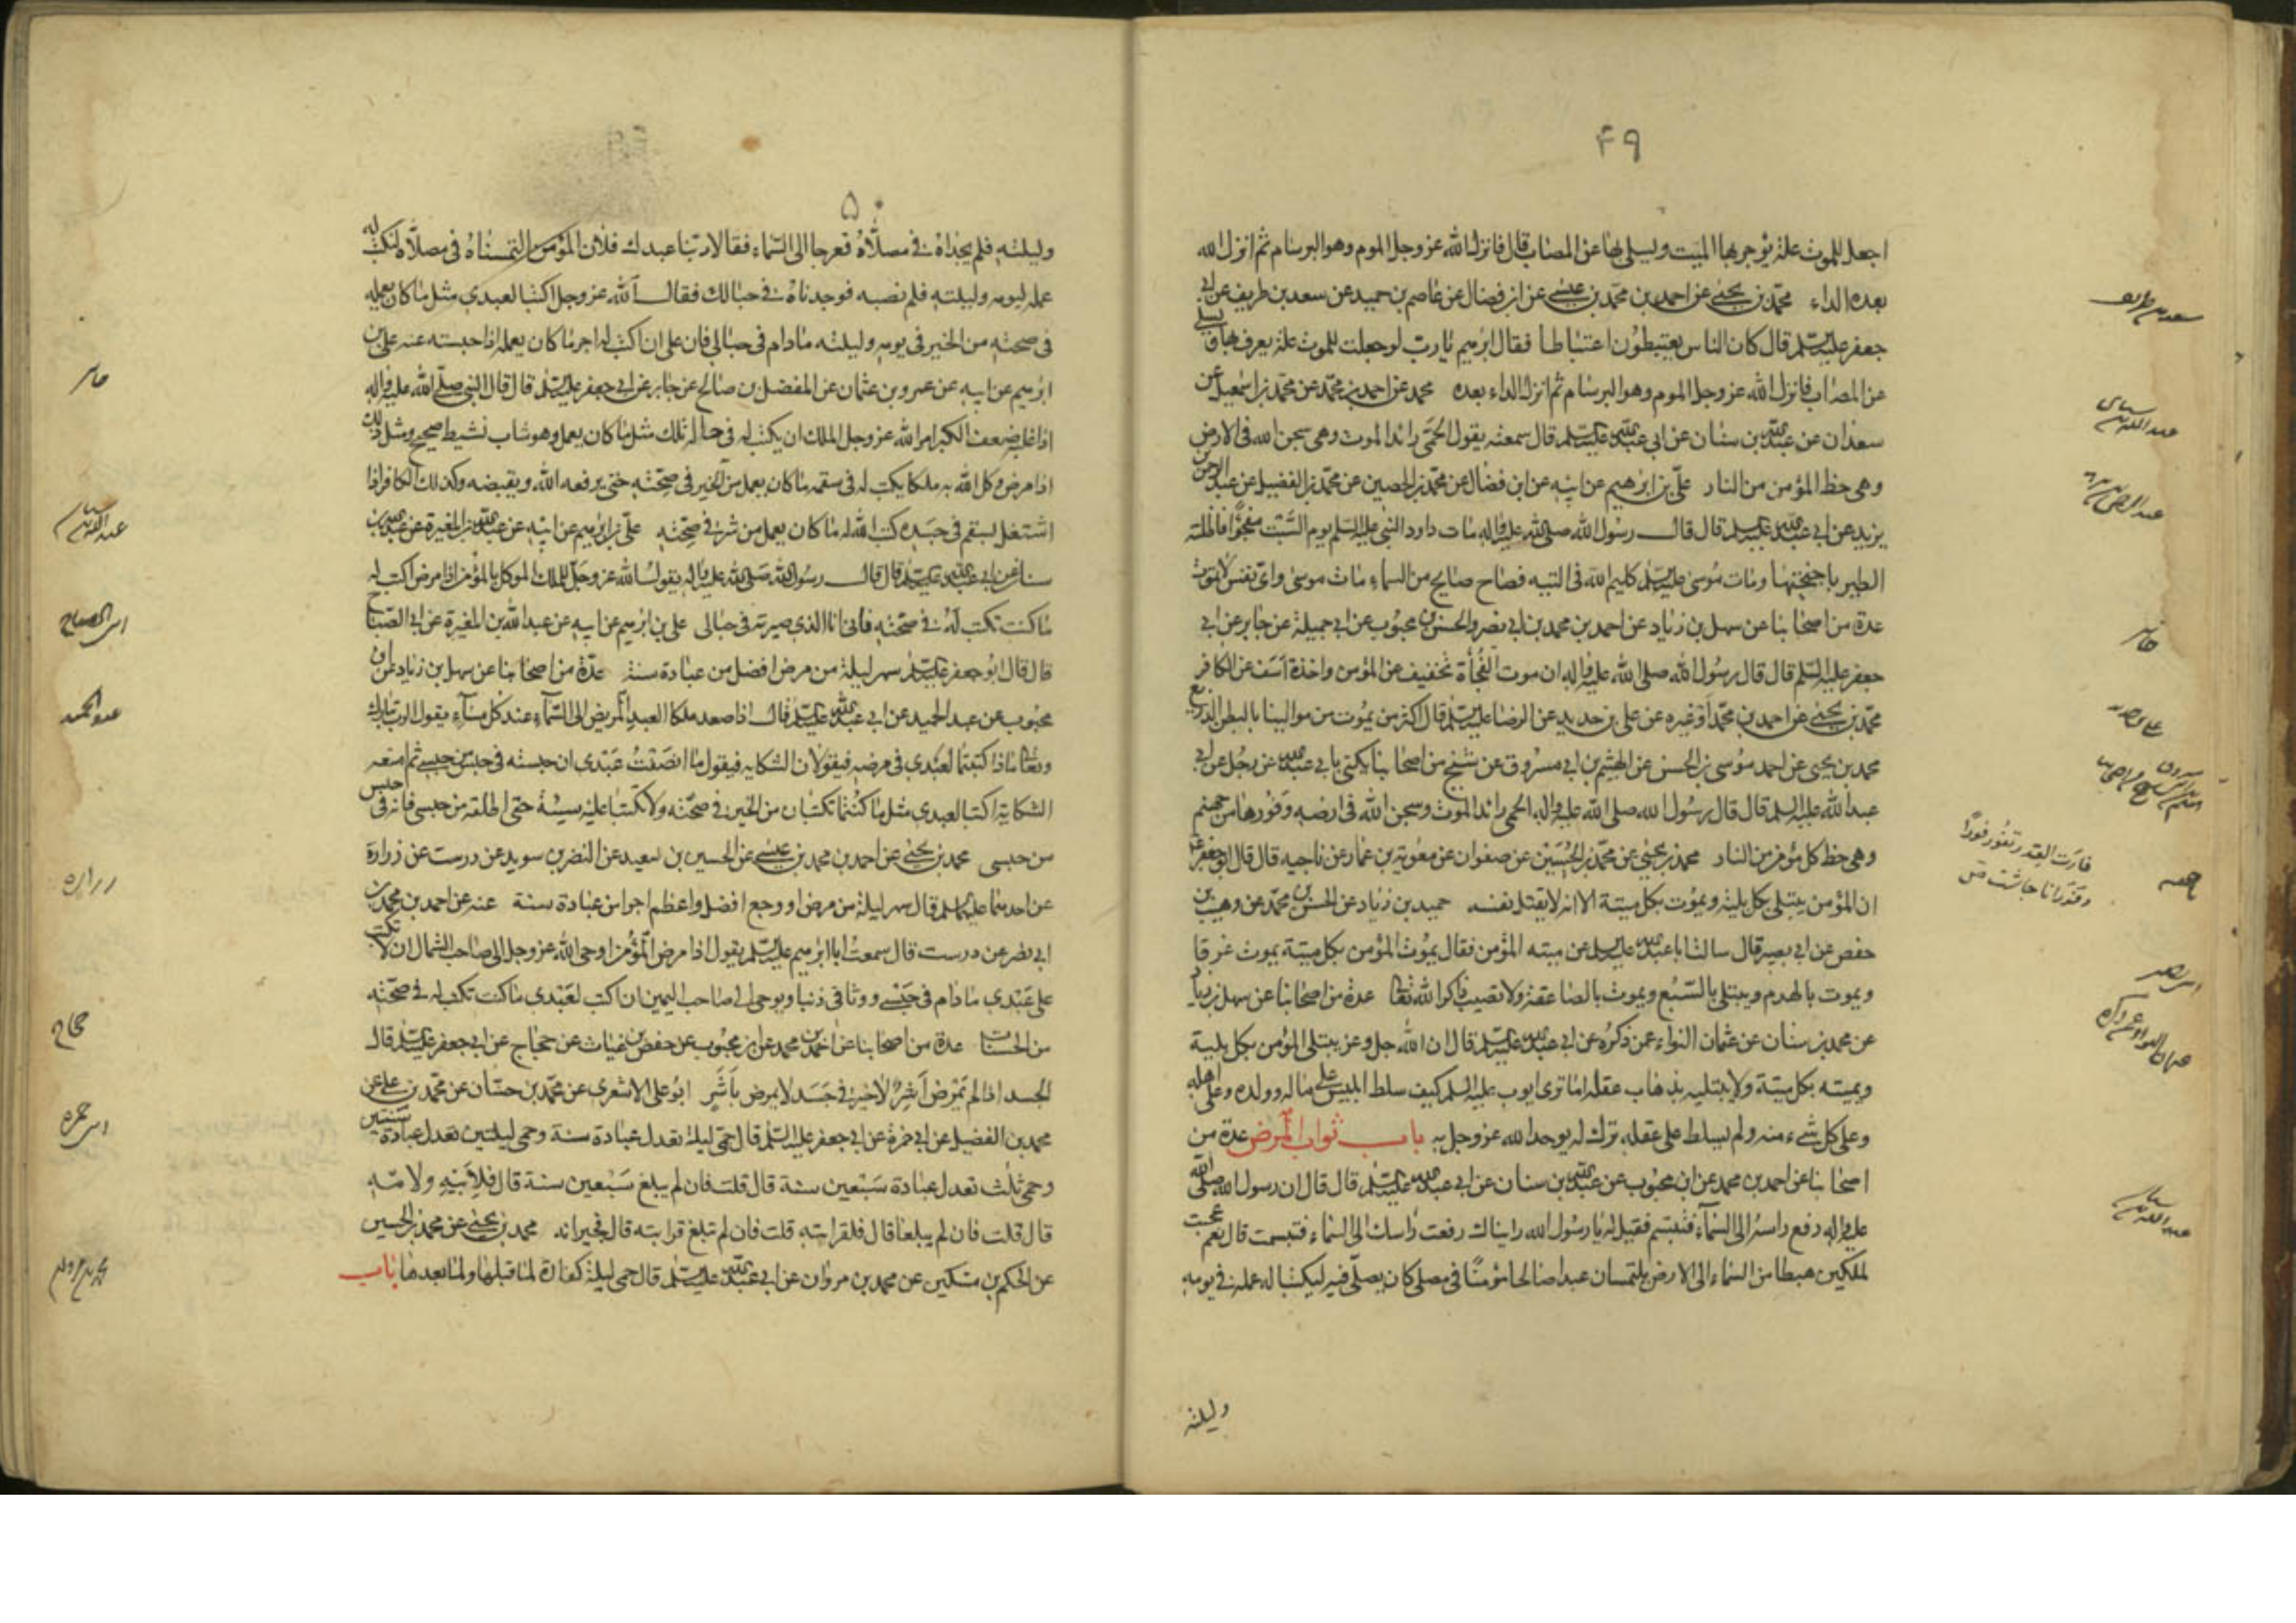 ۴۹
اجعل للموت علة يؤجر بها الميت ويسلى بها عن المصاب قال فانزل الله عز وجل الموم وهو البرسام ثم انزل الله
بعده الداء محمد بن يحيى عن احمد بن محمد بن عيسى عن ابن فضال عن عاصم بن حميد عن سعد بن طريف عن ابى
جعفر عليه السلم قال كان الناس يعتبطون اعتباطا فقال ابرهيم يا رب لو جعلت للموت علة يعرف بها ويسلى
عن المصاب فانزل الله عز وجل الموم وهو البرسام ثم انزل الداء بعده محمد عن احمد بن محمد عن محمد بن اسمعيل عن
سعدان عن عبد الله بن سنان عن ابى عبد الله عليه السلم قال سمعته يقول الحمى رائد الموت وهى سجن الله فى الارض
وهى حظ المؤمن من النار على بن ابرهيم عن ابيه عن ابن فضال عن محمد بن الحصين عن محمد بن الفضيل عن عبد الرحمن بن
يزيد عن ابى عبد الله عليه السلم قال قال رسول الله صلى الله عليه واله مات داود النبى عليه السلم يوم السبت مفجوًا فاظلته
الطير باجنحتها ومات موسى عليه السلم كليم الله فى التيه فصاح صايح من السماء مات موسى واىّ نفس لا تموت
عدة من اصحابنا عن سهل بن زياد عن احمد بن محمد بن ابى نصر والحسن بن محبوب عن ابى جميلة عن جابر عن ابى
جعفر عليه السلم قال قال رسول الله صلى الله عليه واله ان موت الفجأة تخفيف عن المؤمن واخذة اسف عن الكافر
محمد بن يحيى عن احمد بن محمد او غيره عن على بن حديد عن الرضا عليه السلم قال اكثر من يموت من موالينا بالبطن الذريع
محمد بن يحيى عن احمد موسى بن الحسن عن الهيثم بن ابى مسروق عن شيخ من اصحابنا يكنى بابى عبد الله عن رجل عن ابى
عبد الله عليه السلم قال قال رسول الله صلى الله عليه واله الحمى رائد الموت وسجن الله فى ارضه وفورها من جهنم
وهى حظ كل مؤمن من النار محمد بن يحيى عن محمد بن الحسين عن صفوان عن معوية بن عمار عن ناجيه قال قال ابو جعفر ع
ان المؤمن يبتلى بكل بلية ويموت بكل ميتة الا انه لا يقتل نفسه حميد بن زياد عن الحسن بن محمد عن وهيب بن
حفص عن ابى بصير قال سالت ابا عبد الله عليه السلم عن ميته المؤمن فقال يموت المؤمن بكل ميتة يموت غرقا
ويموت بالهدم ويبتلى بالسّبُع ويموت بالصاعقة ولا تصيب ذاكر الله تعالى عدة من اصحابنا عن سهل بن زياد
عن محمد بن سنان عن عثمان النواء عمن ذكره عن ابى عبد الله عليه السلم قال ان الله جل وعز يبتلى المؤمن بكل بلية
ويميته بكل ميتة ولا يبتليه بذهاب عقله اما ترى ايوب عليه السلم كيف سلط ابليس على ماله وولده وعلى اهله
وعلى كل شىء منه ولم يسلط على عقله ترك له يوحد الله عز وجل به باب ثواب المرض عدة من
اصحابنا عن احمد بن محمد عن ابن محبوب عن عبد الله بن سنان عن ابى عبد الله عليه السلم قال قال ان رسول الله صلى الله
عليه واله رفع راسه الى السماء فتبسم فقيل له يا رسول الله رايناك رفعت راسك الى السماء فتبسمت قال نعم عجبت
لملكين هبطا من السماء الى الارض يلتمسان عبدا صالحا مؤمنًا فى مصلى كان يصلّى فيه ليكتبا له عمله فى يومه
وليلته
سعد بن طريف
عبد الله بن سنان
جابر
على بن حديد
فارت القدر تفور فورًا
ابى بصير
عبد الله بن سنان
۵۰
وليلته فلم يجداه فى مصلّاه فعرجا الى السّماء فقالا ربّنا عبدك فلان المؤمن التمسناه فى مصلّاه لنكتب له
عمله ليومه وليلته فلم نصبه فوجدناه فى حبالك فقال الله عز وجل اكتبا لعبدى مثل ما كان يعمله
فى صحته من الخير فى يومه وليلته ما دام فى حبالى فان على ان اكتب له اجر ما كان يعمله اذا حبسته عنه على بن
ابرهيم عن ابيه عن عمرو بن عثمان عن المفضل بن صالح عن جابر عن ابى جعفر عليه السلم قال قال النبى صلى الله عليه واله
اذا غلبه ضعف الكبر امر الله عز وجل الملك ان يكتب له فى حاله تلك مثل ما كان يعمل وهو شاب نشيط صحيح ومثل ذلك
اذا مرض وكل الله به ملكا يكتب له فى سقمه ما كان يعمل من الخير فى صحّته حتى يرفعه الله ويقبضه وكذلك الكافر اذا
اشتغل بسقم فى جسده كتب الله له ما كان يعمل من شر فى صحّته علّى بن ابرهيم عن ابيه عن عبد الله بن المغيرة عن عبد الله بن
سنان عن ابى عبد الله عليه السلم قال قال رسول الله صلى الله عليه واله يقول الله عز وجلّ للملك الموكل بالمؤمن اذا مرض اكتب له
ما كنت تكتب له فى صحّته فانى انا الذى صيرته فى حبالى على بن ابرهيم عن ابيه عن عبد الله بن المغيرة عن ابى الصباح
قال قال ابو جعفر عليه السلم سهر ليلة من مرض افضل من عبادة سنة عدّة من اصحابنا عن سهل بن زياد عن ابن
محبوب عن عبد الحميد عن ابى عبد الله عليه السلم قال اذا صعد ملكا العبد المريض الى السّماء عند كل مساء يقول الرب تبارك
وتعالى ماذا كتبتما لعبدى فى مرضه فيقولان الشكاية فيقول ما انصفت عبدى ان حبسته فى حبس من حبسى ثم امنعه
الشكاية اكتبا لعبدى مثل ما كنتما تكتبان من الخير فى صحّته ولا تكتبا عليه سيئة حتى اطلقه من حبسى فانه فى حبس
من حبسى محمد بن يحيى عن احمد بن محمد بن عيسى عن الحسين بن سعيد عن النضر بن سويد عن درست عن زرارة
عن احدهما عليهما السلم قال سهر ليلة من مرض او وجع افضل واعظم اجرا من عبادة سنة عنه عن احمد بن محمد بن
ابى نصر عن درست قال سمعت ابا ابرهيم عليه السلم يقول اذا مرض المؤمن اوحى الله عز وجل الى صاحب الشمال ان لا تكتب
على عَبْدى ما دام فى حَبْسى ووثاقى ذنبا ويوحى الى صاحب اليمين ان اكتب لعَبْدى ما كنت تكتب له فى صحّته
من الحسنات عدة من اصحابنا عن احمد بن محمد عن ابن محبوب عن حفص بن غياث عن حجاج عن ابى جعفر عليه السلم قال
الجسد اذا لم يَمْرَض اَشِرَ ولا خير فى جَسَد لا يمرض بِاَشَرٍ ابو على الاشعرى عن محمد بن حسّان عن محمد بن على عن
محمد بن الفضيل عن ابى حمزة عن ابى جعفر عليه السلم قال حمّى ليلة تعدل عبادة سنة وحمى ليلتين تعدل عبادة سنتين
وحمى ثلث تعدل عبادة سَبْعين سنة قال قلت فان لم يبلغ سَبْعين سنة قال فلابيه ولامّه
قال قلت فان لم يبلغا قال فلقرابته قلت فان لم تبلغ قرابته قال فجيرانه محمد بن يحيى عن محمد بن الحسين
عن الحكم بن مسكين عن محمد بن مروان عن ابى عبد الله عليه السلم قال حمى ليلة كفارة لما قبلها ولما بعدها باب
جابر
عبد الله بن سنان
ابى الصباح
عبد الحميد
زراره
حجاج
ابى حمزه
محمد بن مروان